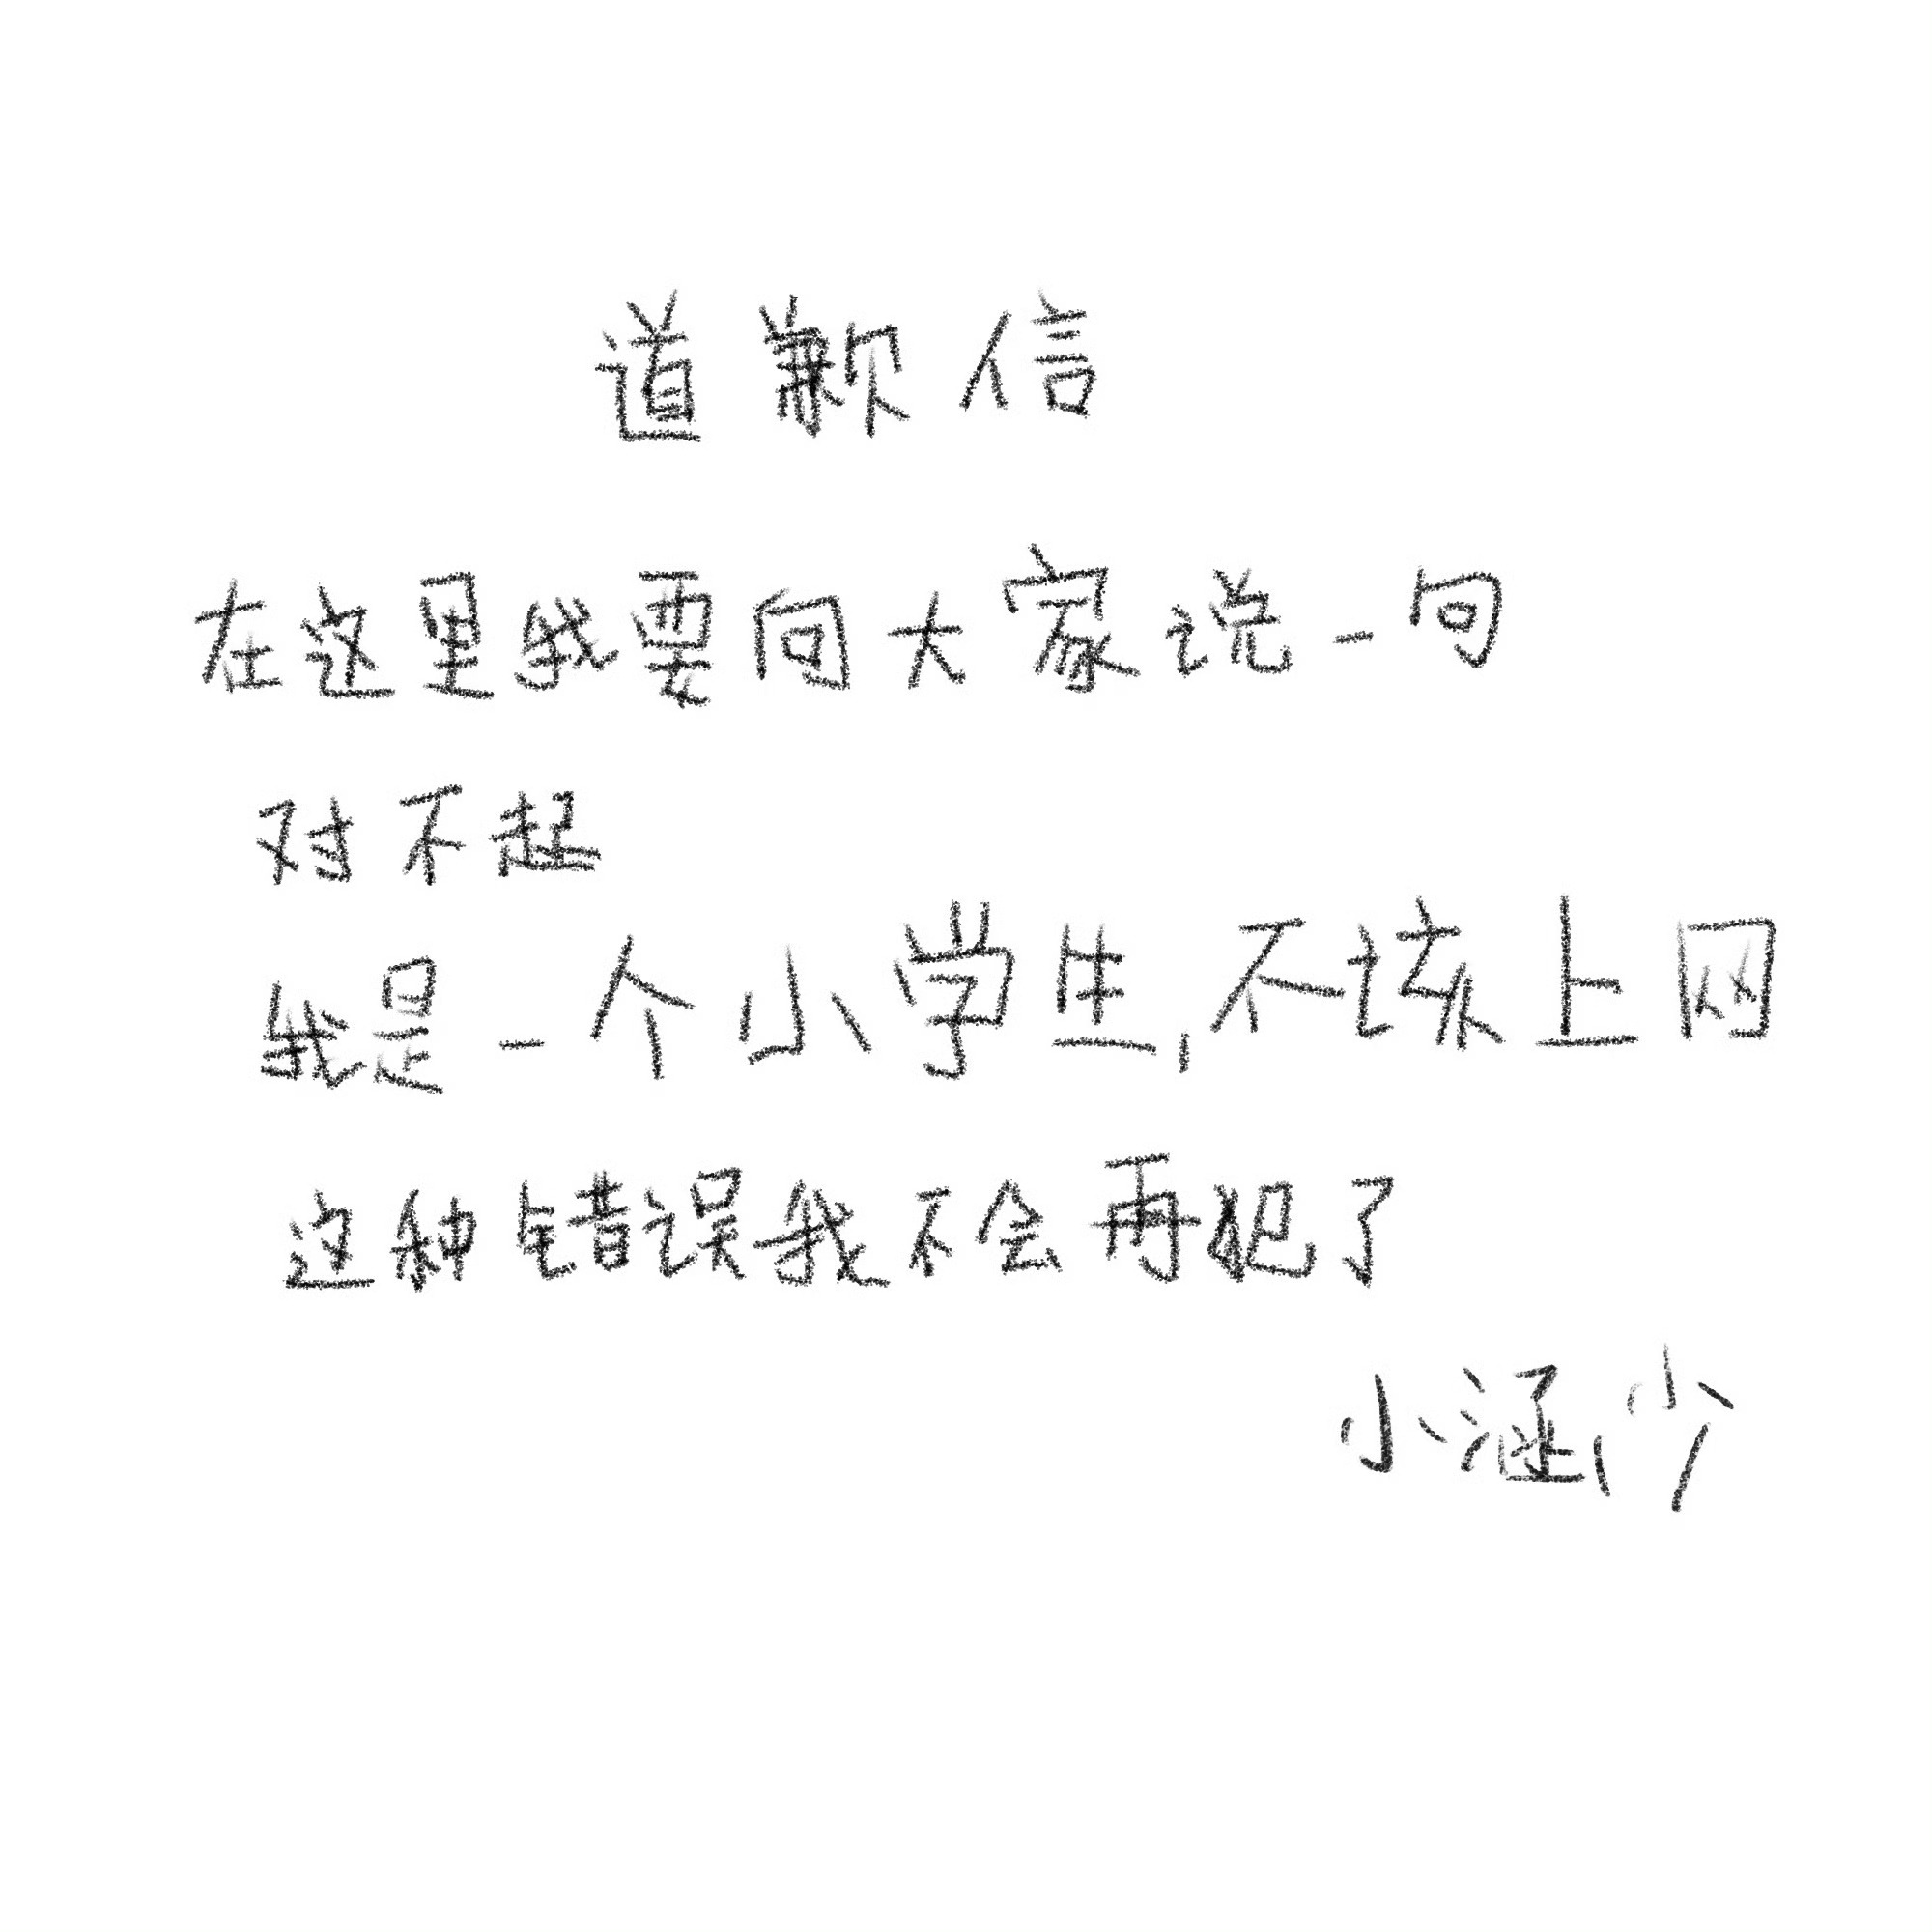 道歉信
在这里我要向大家说一句
对不起
我是一个小学生,不该上网
这种错误我不会再犯了
小涵少